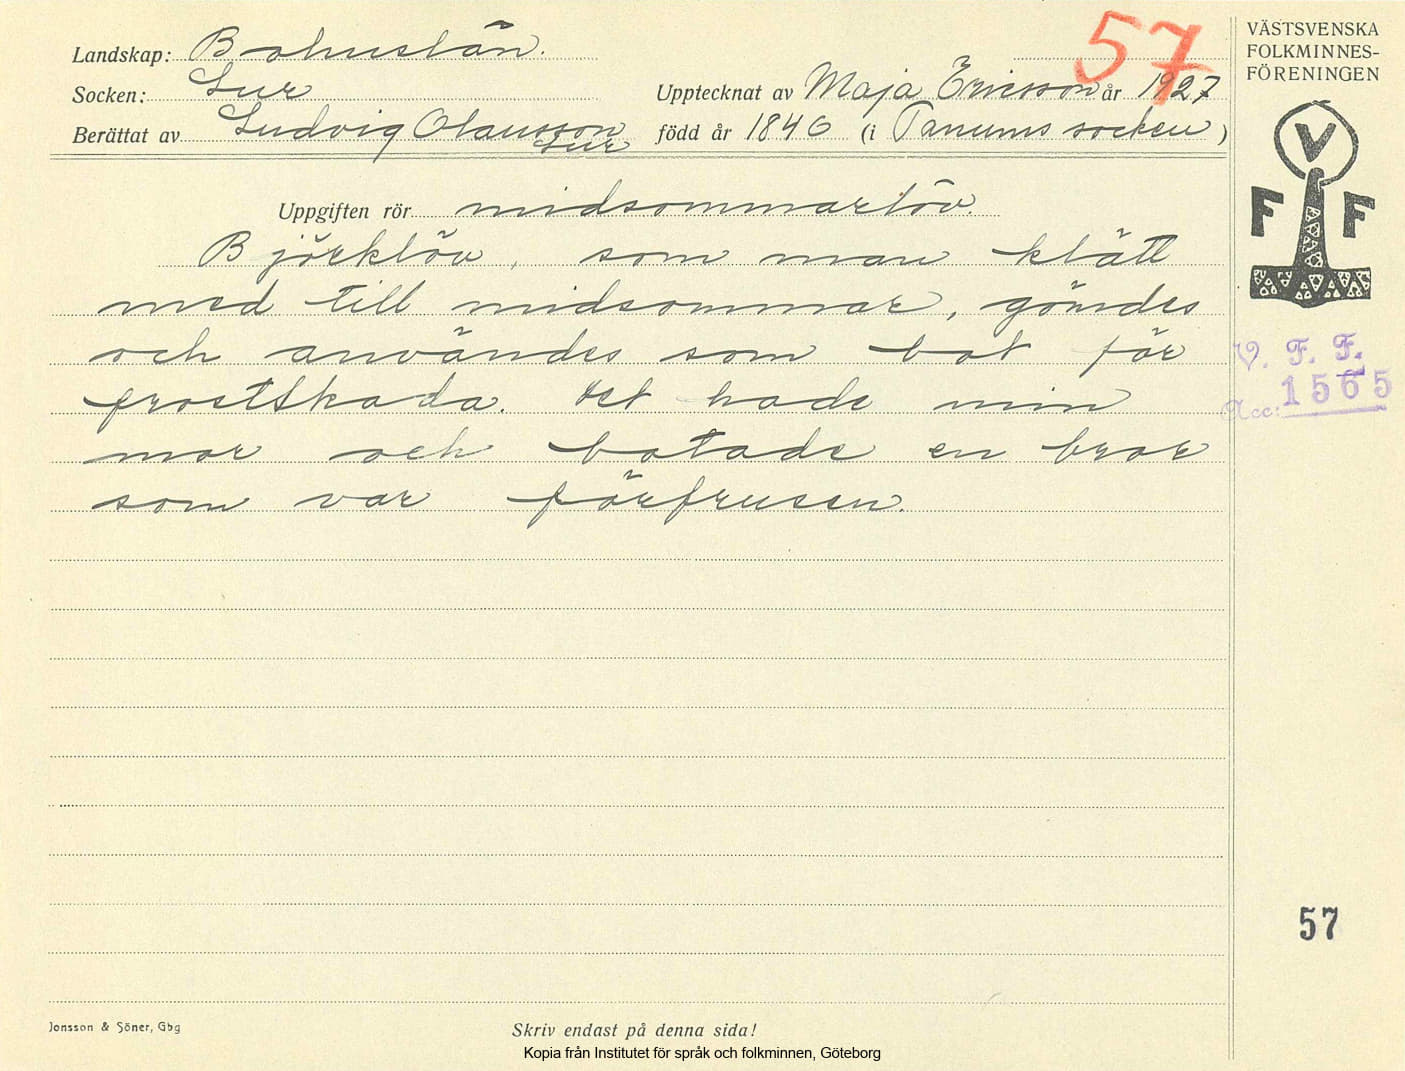 57
Landskap: Bohuslän.
Socken: Lur
Upptecknat av Maja Ericsson år 1927
Berättat av Ludvig Olausson
Lur
född år 1846 (i Tanums socken)
Uppgiften rör midsommarlöv.
Björklöv, som man klätt
med till midsommar, gömdes
och användes som bot för
frostskada. Det hade min
mor och botade en bror
som var förfrusen.
VÄSTSVENSKA
FOLKMINNES-
FÖRENINGEN
V
F F
V. F. F.
Acc: 1565
57
Jonsson & Söner, Gbg
Skriv endast på denna sida!
Kopia från Institutet för språk och folkminnen, Göteborg